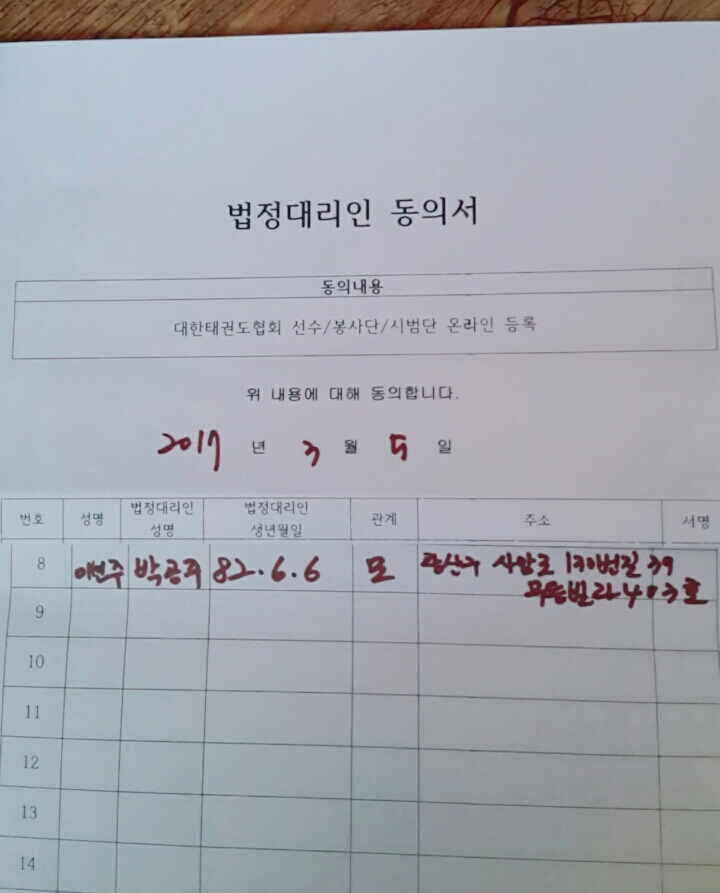 법정대리인 동의서
동의내용
대한태권도협회 선수/봉사단/시범단 온라인 등록
위 내용에 대해 동의합니다.
2017 년 3 월 5 일
번호 성명 법정대리인 성명 법정대리인 생년월일 관계 주소 서명
8 이연주 박공주 82.6.6 모 광산구 사암로 130번길 39
빌라 403호
9
10
11
12
13
14